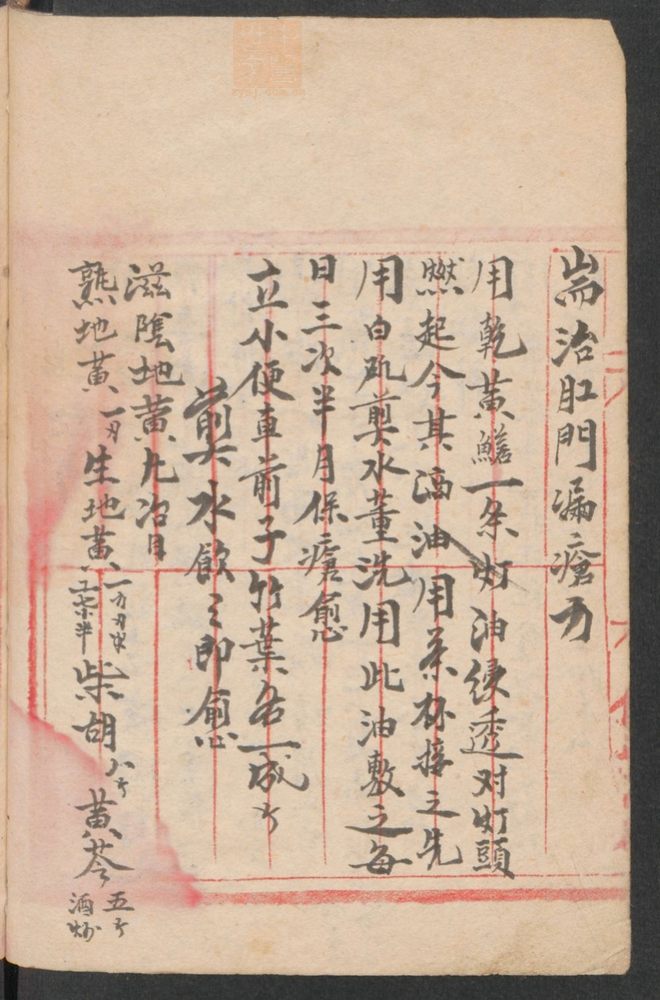 耑治肛門漏瘡方
用乾黃鱔一条灯油浸透对灯頭
燃起令其滴油用茶杯接之先
用白矾煎水薰洗用此油敷之每
日三次半月保瘡愈
立小便車前子竹葉各一
煎水飲之即愈
滋陰地黃丸治目
熟地黃一刄生地黃一刄刄半柴胡八
黃芩五
酒炒